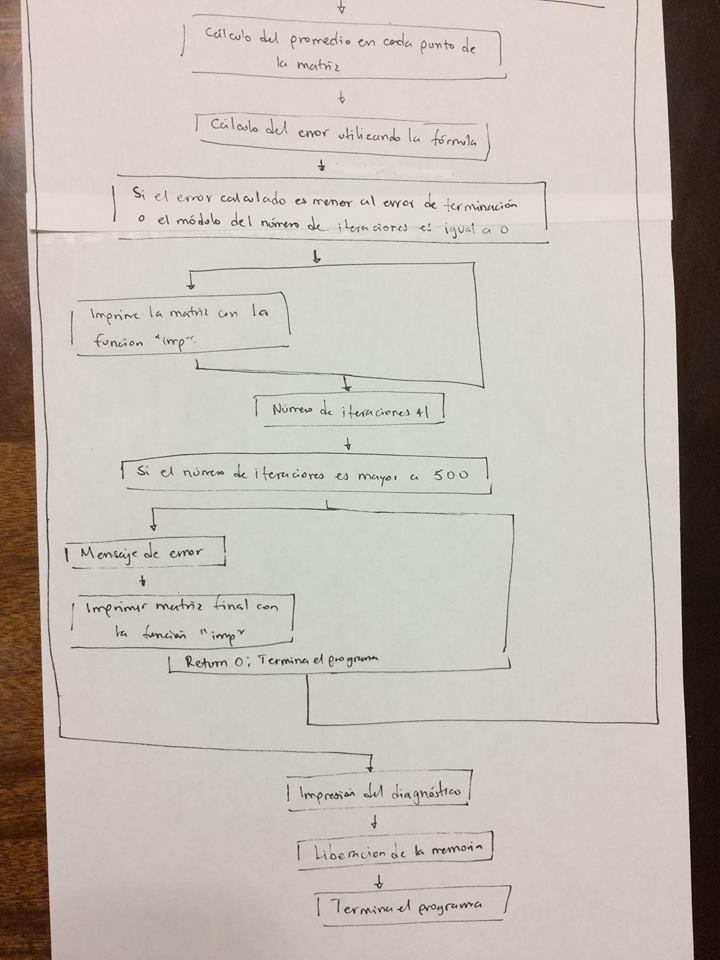 Cálculo del promedio en cada punto de
la matriz
Cálculo del error utilizando la fórmula
Si el error calculado es menor al error de terminación
o el módulo del número de iteraciones es igual a 0
Imprime la matriz con la
función "imp".
Número de iteraciones +1
Si el número de iteraciones es mayor a 500
Mensaje de error
Imprimir matriz final con
la función "imp"
Return 0; Termina el programa
Impresión del diagnóstico
Liberación de la memoria
Termina el programa